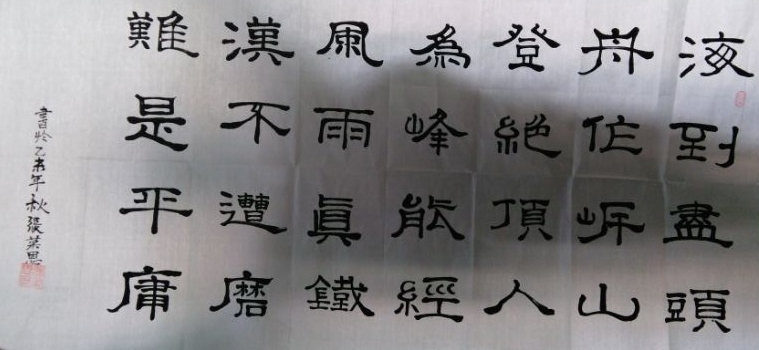 海到盡頭
舟作岸山
登絕頂人
為峰能經
風雨眞鐵
漢不遭磨
難是平庸
書於乙未年秋張